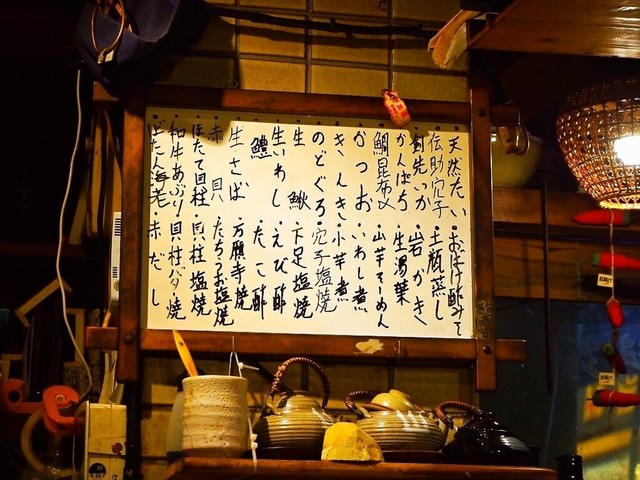 天然たい・おばけ酢みそ
伝助穴子・土瓶蒸し
剣先いか・岩がき
かんぱち・生湯葉
鯛昆布〆・山芋そーめん
かつお・いわし煮
きんき・小芋煮
のどぐろ・穴子塩焼
生鰍・下足塩焼
生いわし・えび酢
鱧・たこ酢
生さば・万願寺焼
赤貝・たちうお塩焼
ほたて貝柱・貝柱塩焼
和牛あぶり・貝柱バター焼
ぼたん海老・赤だし